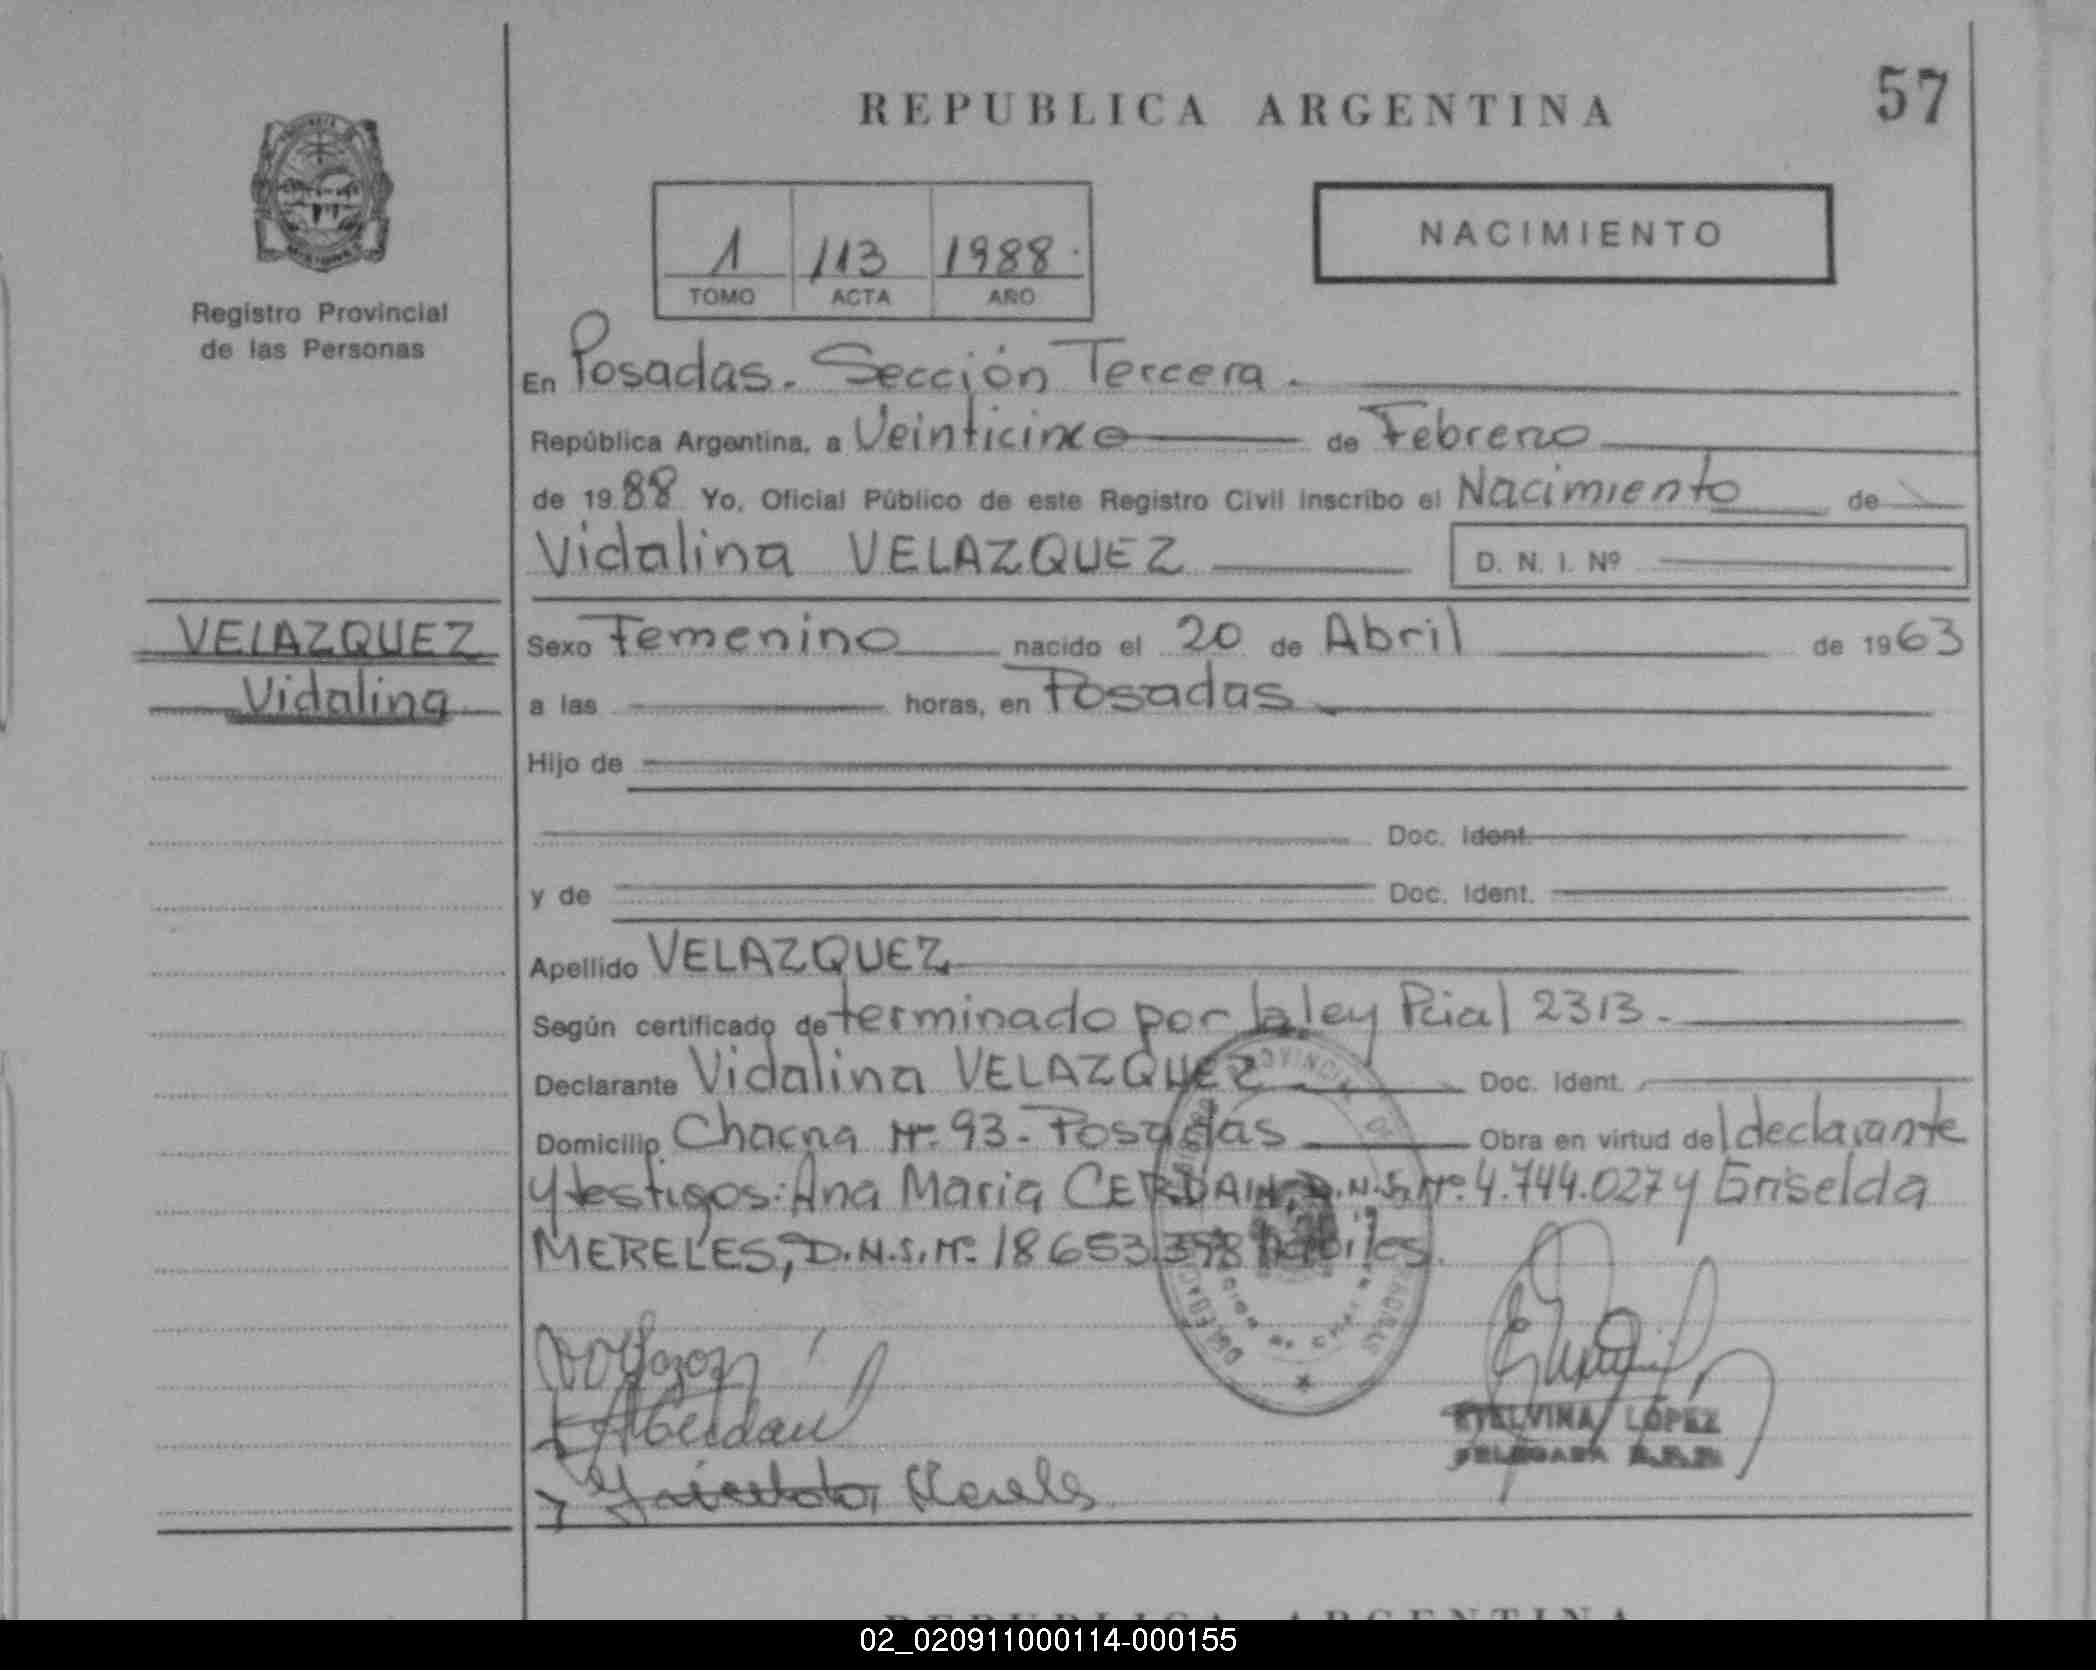 57
REPUBLICA ARGENTINA
NACIMIENTO
1 113 1988.
TOMO ACTA AÑO
Registro Provincial
de las Personas
En Posadas. Sección Tercera.
República Argentina, a Veinticinco de Febrero
de 1988 Yo, Oficial Público de este Registro Civil inscribo el Nacimiento de
Vidalina VELAZQUEZ D. N. I. Nº
VELAZQUEZ
Vidalina
Sexo Femenino nacido el 20 de Abril de 1963
a las horas, en Posadas
Hijo de
Doc. Ident.
y de Doc. Ident.
Apellido VELAZQUEZ
Según certificado determinado por la ley Pcial 2313.
Declarante Vidalina VELAZQUEZ Doc. Ident.
Domicilio Chacra Nº 93 - Posadas Obra en virtud del declarante
y testigos: Ana Maria CERDAN, D.N.I. Nº 4.744.027 y Griselda
MERELES, D.N.I. Nº 18653.398 hábiles.
LÓPEZ
REPUBLICA ARGENTINA
02_020911000114-000155